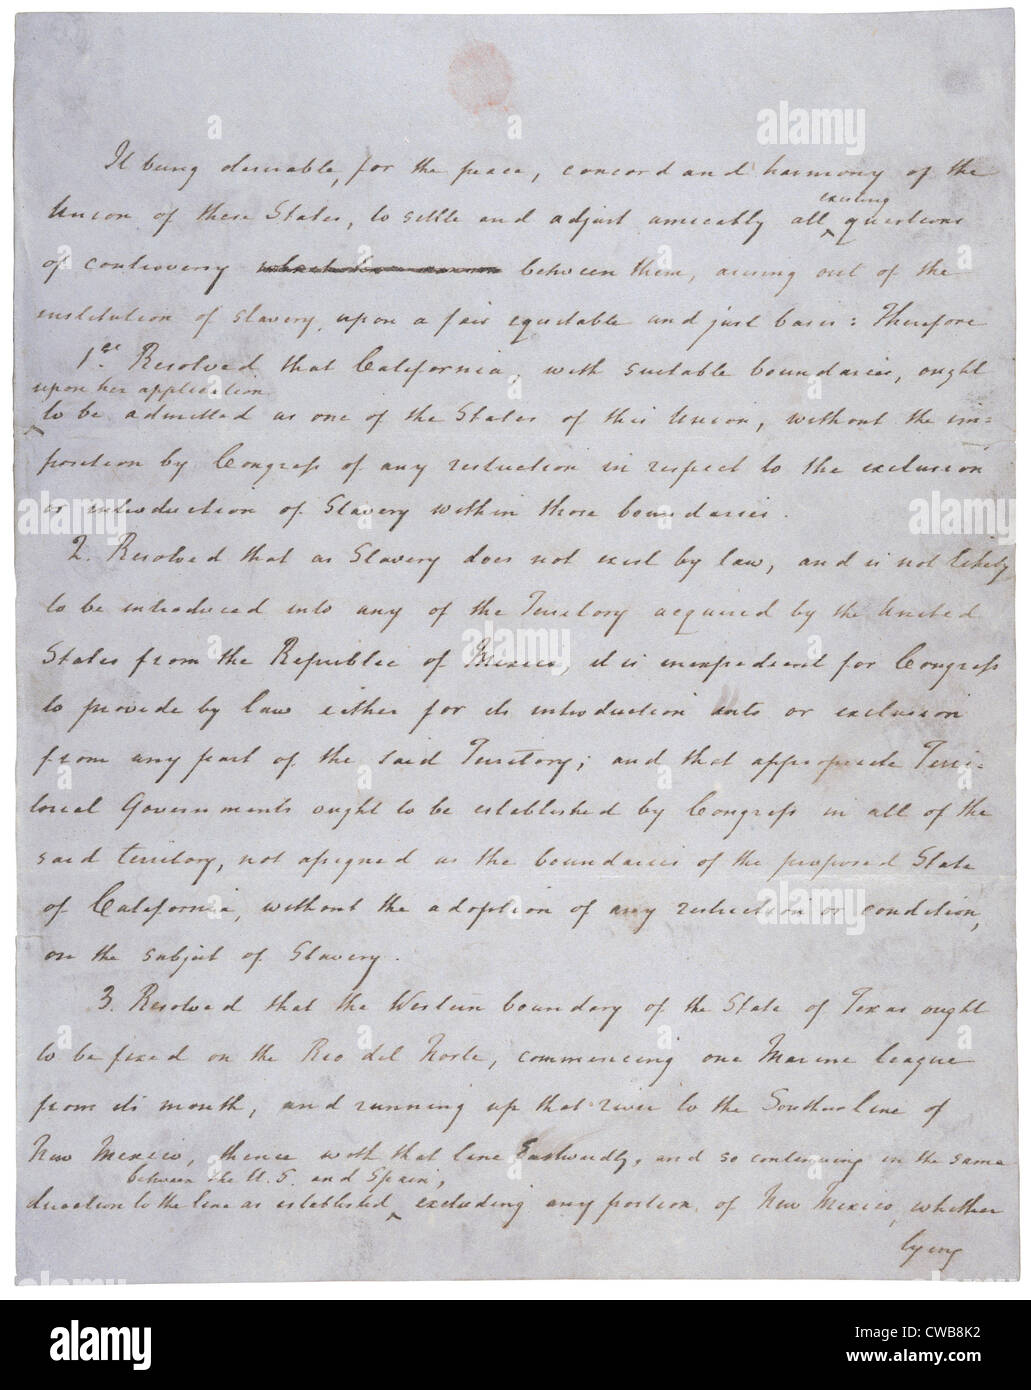 It being desirable, for the peace, concord and harmony of the
existing
Union of these States, to settle and adjust amicably all ‸ questions
of controversy between them, arising out of the
institution of slavery, upon a fair equitable and just basis: Therefore
1st. Resolved that California, with suitable boundaries, ought
upon her application
‸ to be admitted as one of the States of this Union, without the im=
position by Congress of any restriction in respect to the exclusion
or introduction of Slavery within those boundaries.
2. Resolved that as Slavery does not exist by law, and is not likely
to be introduced into any of the Territory acquired by the United
States from the Republic of Mexico, it is inexpedient for Congress
to provide by law either for its introduction into or exclusion
from any part of the said Territory; and that appropriate Terri-
torial Governments ought to be established by Congress in all of the
said territory, not assigned as the boundaries of the proposed State
of California, without the adoption of any restriction or condition,
on the subject of Slavery.
3. Resolved that the Western boundary of the State of Texas ought
to be fixed on the Rio del Norte, commencing one Marine league
from its mouth, and running up that river to the Southern line of
New Mexico, thence with that line Eastwardly, and so continuing in the same
between the U.S. and Spain,
direction to the line as established ‸ excluding any portion of New Mexico, whether
lying
a alamy
a a
alamy alamy
a alamy a
alamy alamy
a a
alamy
alamy
Image ID: CWB8K2
www.alamy.com